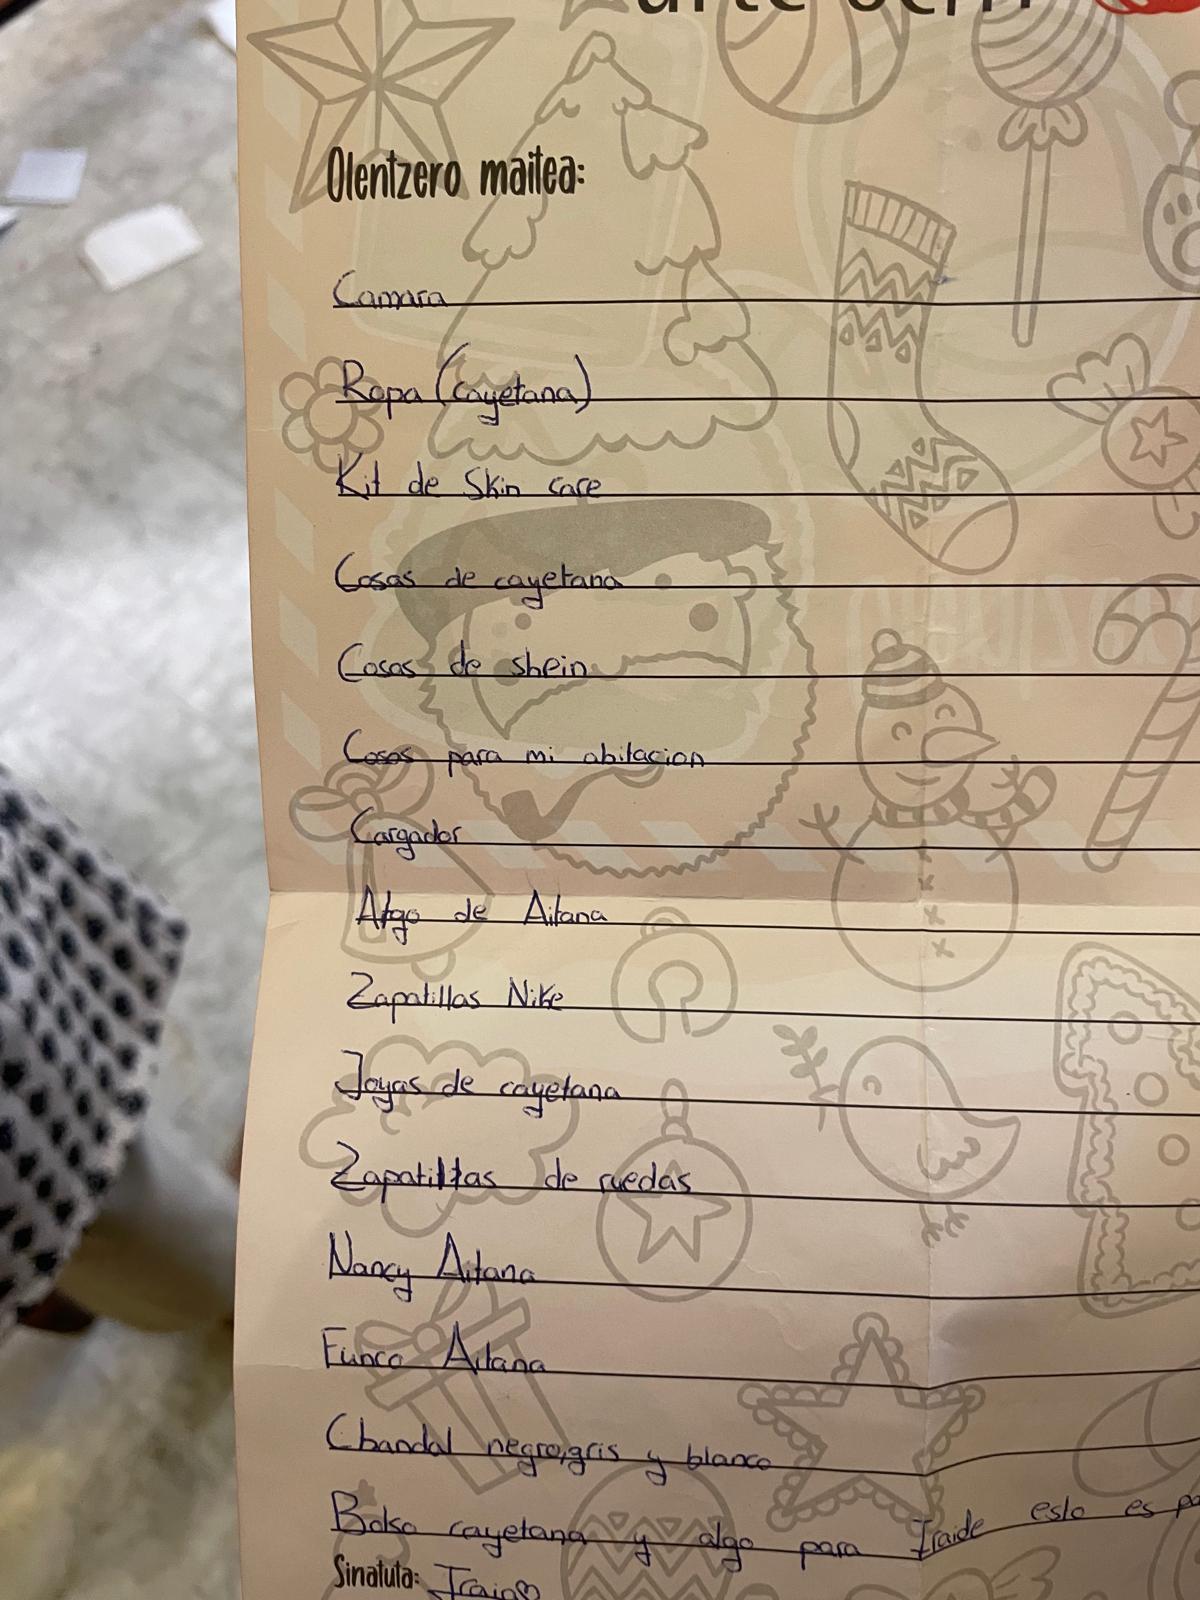 Olentzero maitea:
Camara
Ropa (cayetana)
Kit de Skin care
Cosas de cayetana
Cosas de shein
Cosas para mi abitacion
Cargador
Algo de Aitana
Zapatillas Nike
Joyas de cayetana
Zapatillas de ruedas
Nancy Aitana
Funco Aitana
Chandal negro,gris y blanco
Bolso cayetana y algo para Iraide esto es
Sinatuta: